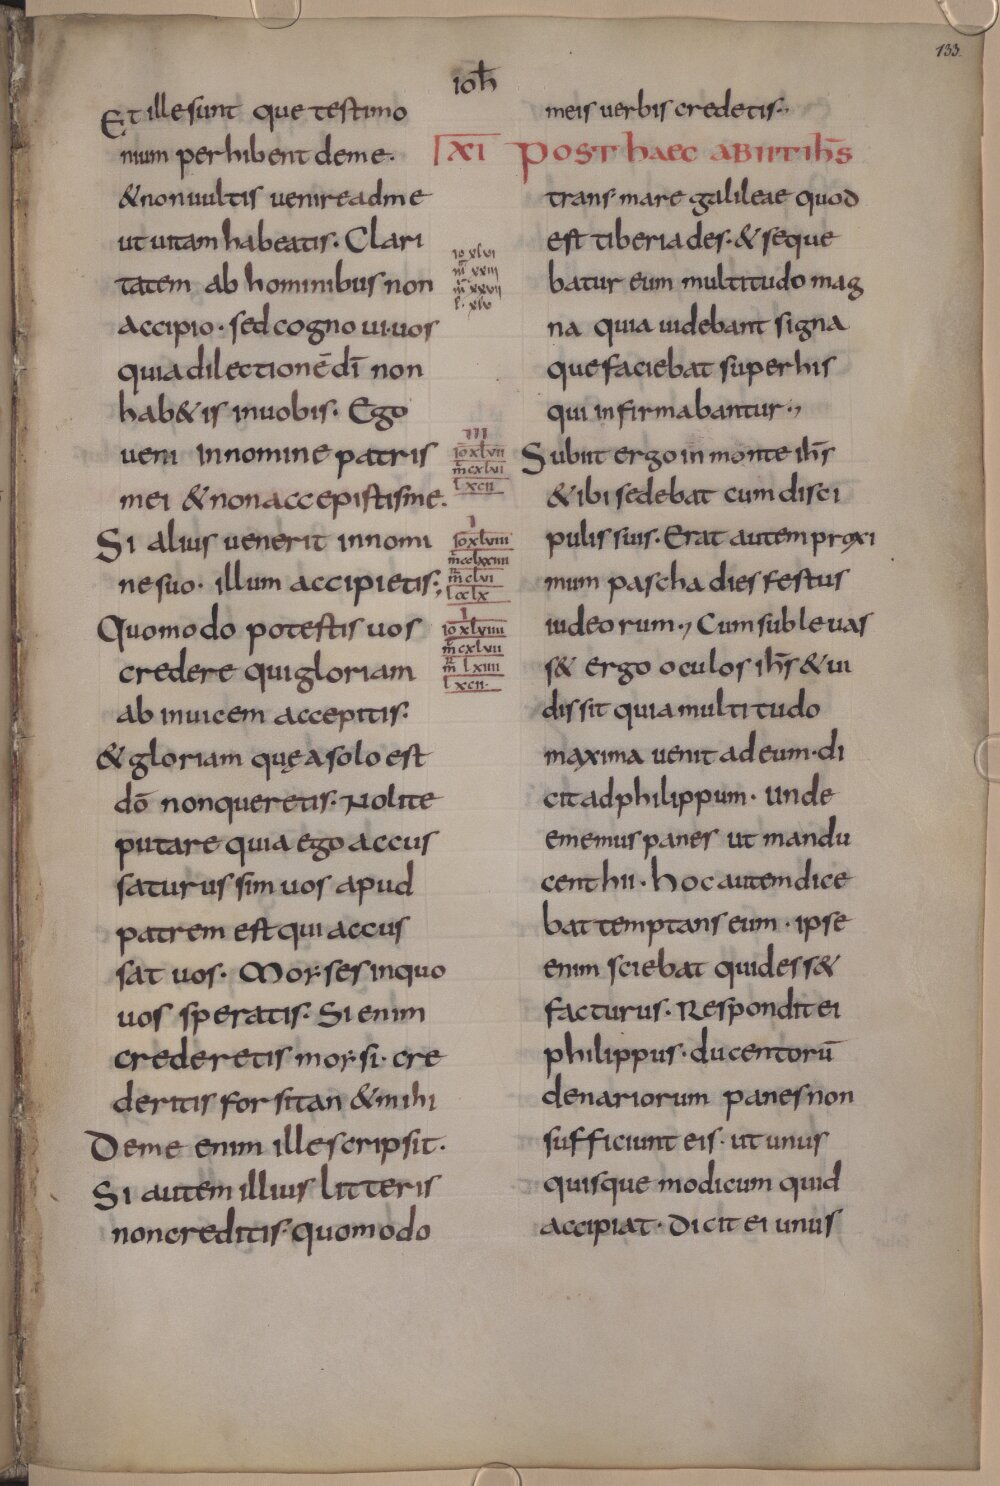 133
ioħ
Et ille sunt que testimo
nium perhibent de me.
& non uultis uenire ad me
ut uitam habeatis. Clari
tatem ab hominibus non
accipio. sed cognoui. uos
quia dilectionē dī non
hab&is in uobis. Ego
ueni in nomine patris
mei & non accepistis me.
Si alius uenerit in nomi
ne suo. illum accipietis;
Quomodo potestis uos
credere qui gloriam
ab inuicem accepitis.
& gloriam quę a solo est
dō non queretis. Nolite
putare quia ego accus
saturus sim uos apud
patrem est qui accus
sat uos. Moyses in quo
uos speratis. Si enim
crederetis moysi. cre
deritis forsitan & mihi
De me enim ille scripsit.
Si autem illius litteris
non creditis. quomodo
io xlvi
m̄ xxiii
l. xlv
iii
io xlvii
m̄ cxlvi
l xcii
i
io xlviii
m̄ cclxxiiii
m̄ clvi
l cclx
i
io xlviiii
m̄ cxlvii
m̄ lxiiii
l xcii.
meis uerbis credetis.,
XI Post haec abiit ih̄s
trans mare galileae quod
est tiberiades. & seque
batur eum multitudo mag
na quia uidebant signa
que faciebat super his
qui infirmabantur.,
Subiit ergo in monte ih̄s
& ibi sedebat cum disci
pulis suis. Erat autem proxi
mum pascha dies festus
iudeorum., Cum subleuas
s& ergo oculos ih̄s & ui
dissit quia multitudo
maxima uenit ad eum. di
cit ad philippum. Unde
ememus panes ut mandu
cent hii. hoc autem dice
bat temptans eum. ipse
enim sciebat quid ess&
facturus. Respondit ei
philippus. ducentorū
denariorum panes non
sufficiunt eis. ut unus
quisque modicum quid
accipiat. Dicit ei unus